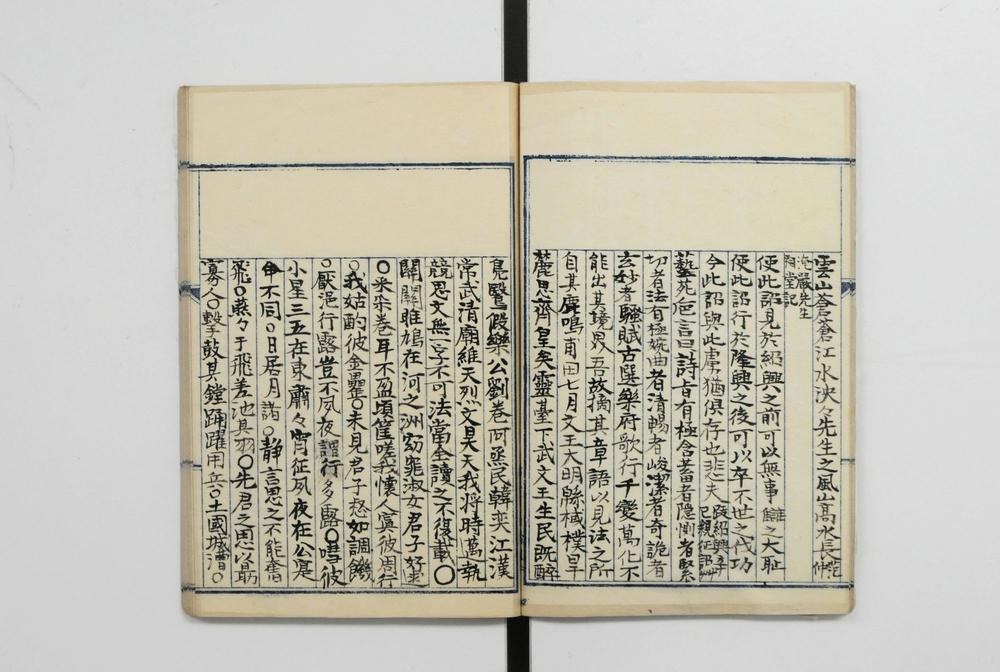 雲山蒼蒼江水泱々先生之風山高水長 范仲
淹嚴先生
祠堂記
使此詔見於紹興之前可以無事讎之大恥
使此詔行於隆興之後可以卒不世之伐功
今此詔與此虜猶俱存也悲夫 跋紹興辛
巳親征詔艸
藝苑卮言曰詩旨有極含蓄者隱惻者緊
切者法有極婉曲者清暢者峻潔者奇詭者
玄妙者騷賦古選樂府歌行千變萬化不
能出其境界吾故摘其章語以見法之所
自其鹿鳴甫田七月文王大明緜棫樸旱
麓思齊皇矣靈臺下武文王生民既醉
鳧鷖假樂公劉卷阿烝民韓奕江漢
常武清廟維天烈文昊天我將時邁執
競思文無一字不可法當全讀之不復載〇
關關雎鳩在河之洲窈窕淑女君子好逑
〇采采卷耳不盈頃筐嗟我懷人寘彼周行
〇我姑酌彼金罍〇未見君子惄如調饑
〇厭浥行露豈不夙夜謂行多露〇嘒彼
小星三五在東肅々宵征夙夜在公寔
命不同〇日居月諸〇靜言思之不能奮
飛〇燕々于飛差池其羽〇先君之思以勗
寡人〇擊鼓其鏜踊躍用兵〇土國城漕〇